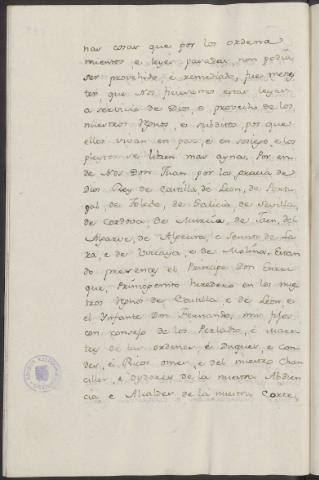 nas cosas que por los ordena
mientos, e leyes pasadas, non podia
ser provehido, e remediado, fue menes
ter que Nos ficieremos estas leyes,
a servicio de Dios, e provecho de los
nuestros Regnos, e subditos, por que
ellos vivan en paz, e en sosiego, e los
pleytos se libren mas ayna. Por en
de Nos Don Juan, por la gracia de
Dios Rey de Castilla de Leon, de Portu
gal de Toledo, de Galicia de Sevilla,
de Cordova de Murcia, de Jaen, del
Algarve, de Algecira, e Sennor de La
ra, e de Vizcaya, e de Molina. Estan
do presentes el Principe Don Enri
que, Primogenito heredero en los nues
tros Regnos de Castilla, e de Leon, e
el Ynfante Don Fernando, mis fijos
con consejo de los Perlados, e Maes
tres de las ordenes, e Duques, e con
des, e Ricos omes, e del nuestro Chan
ciller, e Oydores de la nuestra Abdien
cia, e Alcaldes de la nuestra Corte,